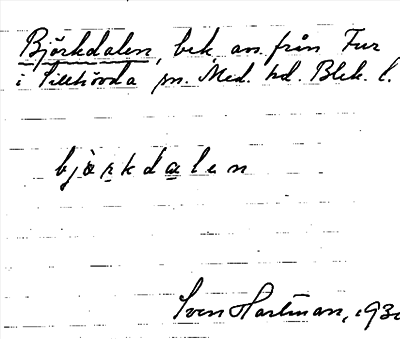 Björkdalen, bek. av. från Fur
i Sillhövda sn. Med. hd. Blek. l.
bjö̀rkdalen
Sven Hartman, 193